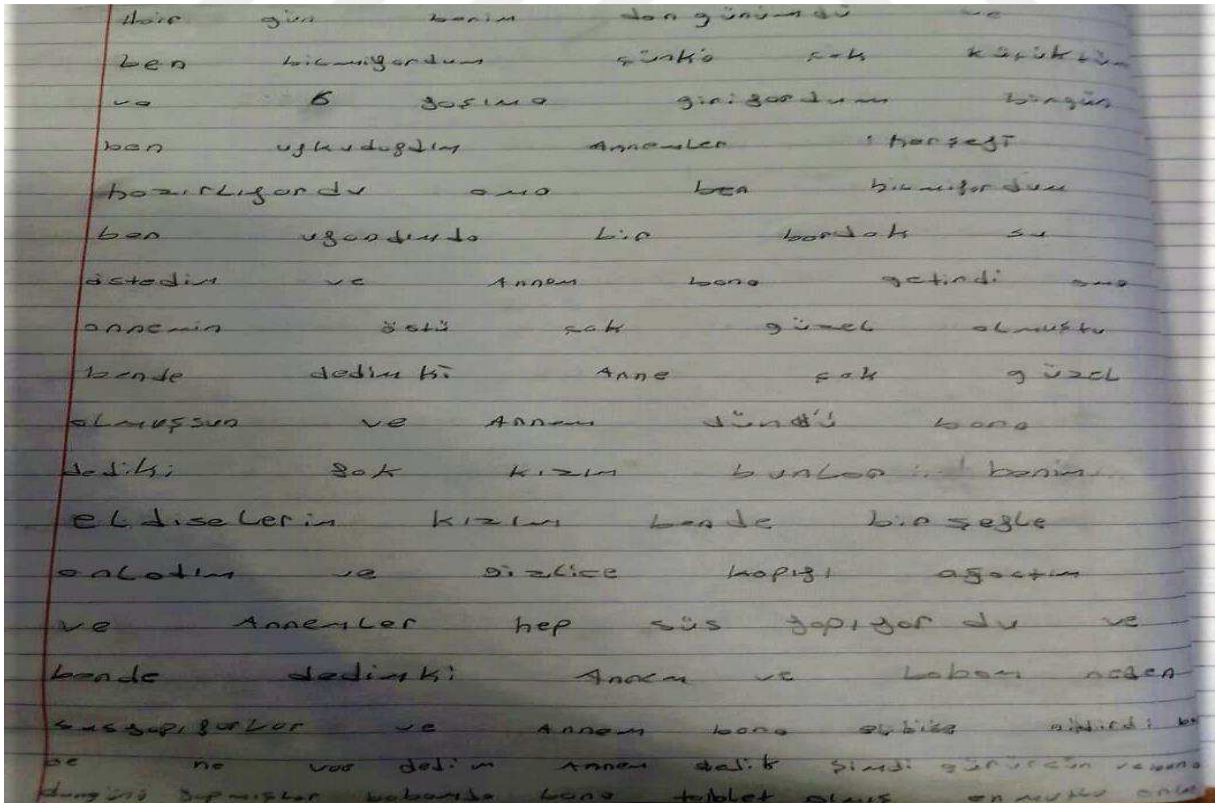 Hair gün benim don günümdü ve
ben bilmiyordum çünkö çok küçüktüm
ve 6 yaşıma giriyordum birgün
ben uykuduydım Annemler herşeyi
hazırlıyordu ama ben bilmiyordum
ben uyandımda bir bardak su
istedim ve Annem bana getirdi ama
annemin östü çok güzel olmuştu
bende dedimki Anne çok güzel
olmuşsun ve Annem döndü bana
dediki yok kızım bunlar benim
eldiselerim kızım bende birşeyle
anladım ve gizlice kapıyı ağaçtım
ve Annemler hep süs yapıyor du ve
bende dedimki Annem ve babam neden
süsyapıyorlar ve Annem bana elbise giydirdi
ne var dedim Annem dedik şimdi görürsün ve bana
yapmışlar babamda bana tablet almış en mutlu